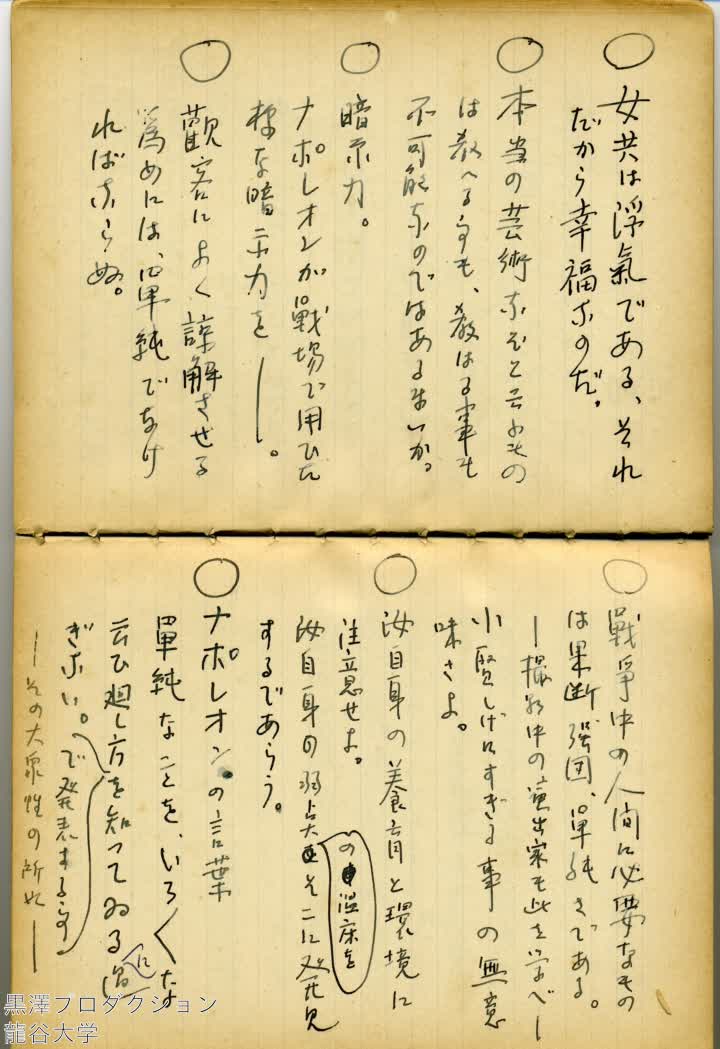 ○ 女共は浮氣である、それ
だから幸福なのだ。
○ 本当の芸術なぞと云ふもの
は教へる事も、教はる事も
不可能なのではあるまいか。
○ 暗示力。
ナポレオンが戰場で用ひた
様な暗示力を――。
○ 觀客によく諒解させる
爲めには、單純でなけ
ればならぬ。
○ 戰爭中の人間に必要なもの
は果断、强固、單純さである。
―撮影中の演出家も此を学べ―
小賢しげにすぎる事の無意
味さよ。
○ 汝自身の養育と環境に
注意せよ。
汝自身の弱点の温床をそこに発見
するであらう。
○ ナポレオンの言葉
單純なことを、いろ〱な
云ひ廻し方で発表する事を知つてゐるに過
ぎない。
―その大衆性の所以―
黒澤プロダクション
龍谷大学